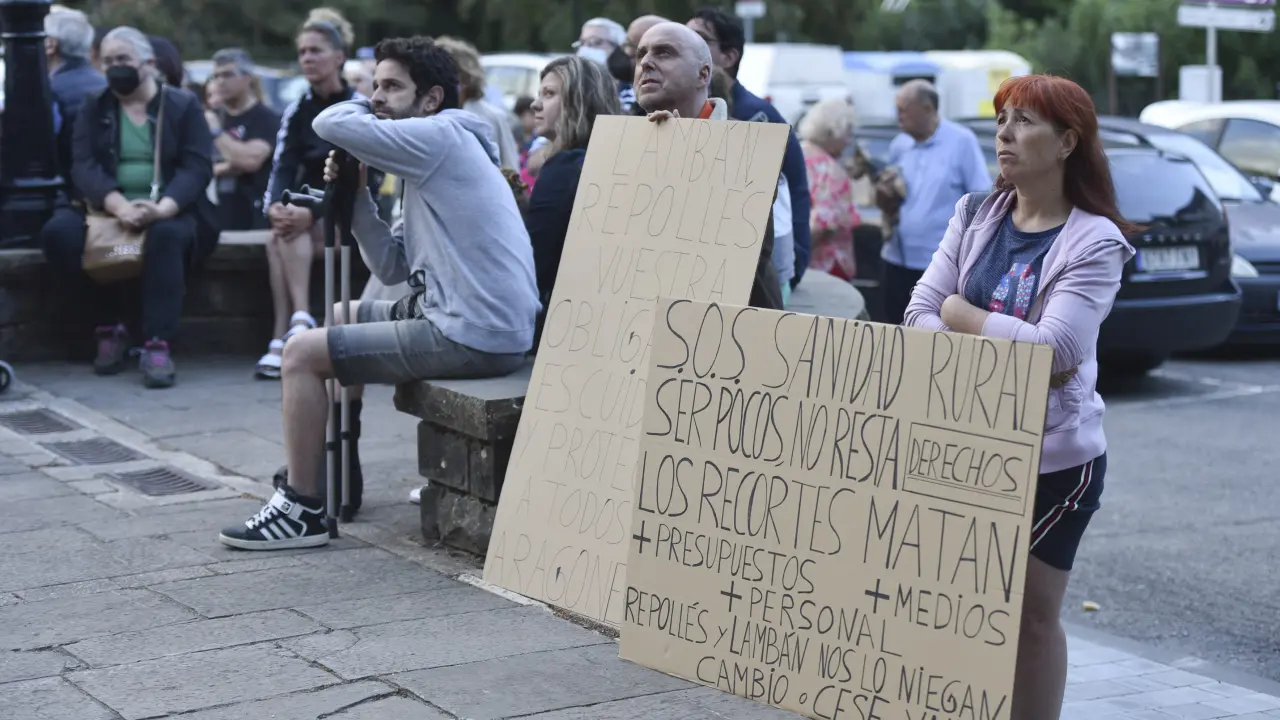 LAMBÁN,
REPOLLÉS
VUESTRA
OBLIGA
ES CUID
Y PROTE
A TODOS
ARAGONE
S.O.S. SANIDAD RURAL
SER POCOS, NO RESTA DERECHOS
LOS RECORTES MATAN
+PRESUPUESTOS
+PERSONAL +MEDIOS
REPOLLÉS Y LAMBÁN NOS LO NIEGAN
CAMBIO o CESE YA